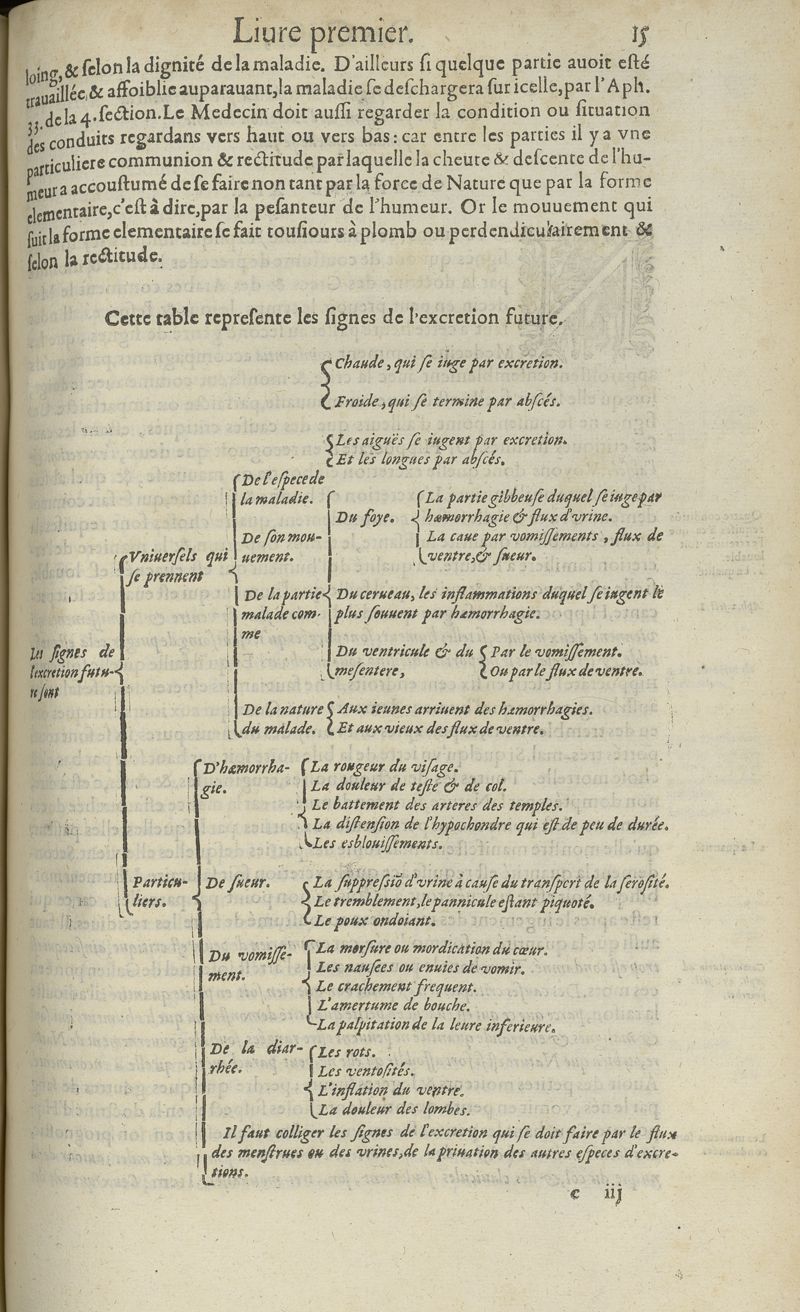 Liure premier. 15
loing, & ſelon la dignité de la maladie. D'ailleurs ſi quelque partie auoit eſté
trauaillée, & affoiblie auparauant, la maladie ſe deſchargera ſur icelle, par l'Aph.
33. de la 4. ſection. Le Medecin doit auſſi regarder la condition ou ſituation
des conduits regardans vers haut ou vers bas: car entre les parties il y a vne
particuliere communion & rectitude par laquelle la cheute & deſcente de l'hu-
meur a accouſtumé de ſe faire non tant par la force de Nature que par la forme
elementaire, c'eſt à dire, par la peſanteur de l'humeur. Or le mouuement qui
ſuit la forme elementaire ſe fait touſiours à plomb ou perdendiculairement &
ſelon la rectitude.
Cette table repreſente les ſignes de l'excretion future.
Chaude, qui ſe iuge par excretion.
Froide, qui ſe termine par abſcés.
Les aiguës ſe iugent par excretion.
Et les longues par abſcés.
De l'eſpece de
la maladie.
De ſon mou-
uement.
La partie gibbeuſe duquel ſe iuge par
Du foye. hæmorrhagie & flux d'vrine.
La caue par vomiſſements, flux de
ventre, & ſueur.
Vniuerſels qui
ſe prennent
De la partie
malade com-
me
Du cerueau, les inflammations duquel ſe iugent le
plus ſouuent par hæmorrhagie.
Du ventricule & du
meſentere,
Par le vomiſſement.
Ou par le flux de ventre.
Les ſignes de
l'excretion futu-
re ſont
De la nature
du malade.
Aux ieunes arriuent des hæmorrhagies.
Et aux vieux des flux de ventre.
D'hæmorrha-
gie.
La rougeur du viſage.
La douleur de teſte & de col.
Le battement des arteres des temples.
La diſtenſion de l'hypochondre qui eſt de peu de durée.
Les esblouiſſements.
Particu-
liers.
De ſueur.
La ſuppreſsiõ d'vrine à cauſe du tranſport de la ſeroſité.
Le tremblement, le pannicule eſtant piquoté.
Le poux ondoiant.
Du vomiſſe-
ment.
La morſure ou mordication du cœur.
Les nauſees ou enuies de vomir.
Le crachement frequent.
L'amertume de bouche.
La palpitation de la leure inferieure.
De la diar-
rhée.
Les rots.
Les ventoſités.
L'inflation du ventre.
La douleur des lombes.
Il faut colliger les ſignes de l'excretion qui ſe doit faire par le flux
des menſtrues ou des vrines, de la priuation des autres eſpeces d'excre-
tions.
c iij